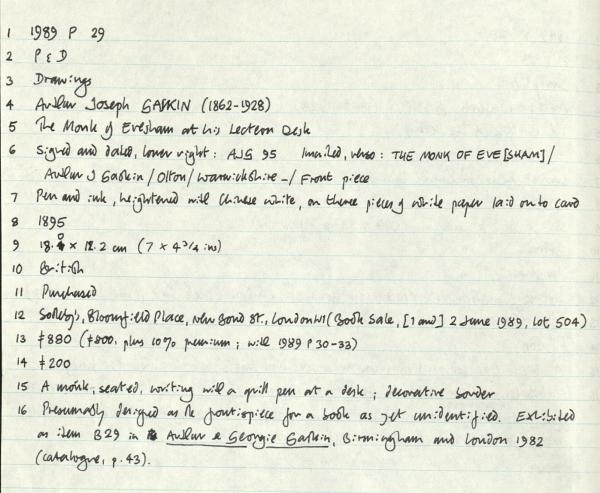 1 1989 P 29
2 P & D
3 Drawings
4 Arthur Joseph GASKIN (1862-1928)
5 The Monk of Evesham at his Lectern Desk
6 Signed and dated, lower right: AJG 95 Inscribed, verso: THE MONK OF EVE[SHAM]/
Arthur J Gaskin / Olton / Warwickshire -/ Front piece
7 Pen and ink, heightened with Chinese white, on three pieces of white paper laid on to card
8 1895
9 18.0 x 12.2 cm (7 x 4 3/4 ins)
10 British
11 Purchased
12 Sotheby's, Bloomfield Place, New Bond St., London W1 (Book Sale, [1 and] 2 June 1989, Lot 504)
13 £880 (£800, plus 10% premium; with 1989 P 30-33)
14 £200
15 A monk, seated, writing with a quill pen at a desk; decorative border
16 Presumably designed as the frontispiece for a book as yet unidentified. Exhibited
as item B29 in Arthur & Georgie Gaskin, Birmingham and London 1982
(catalogue, p. 43).